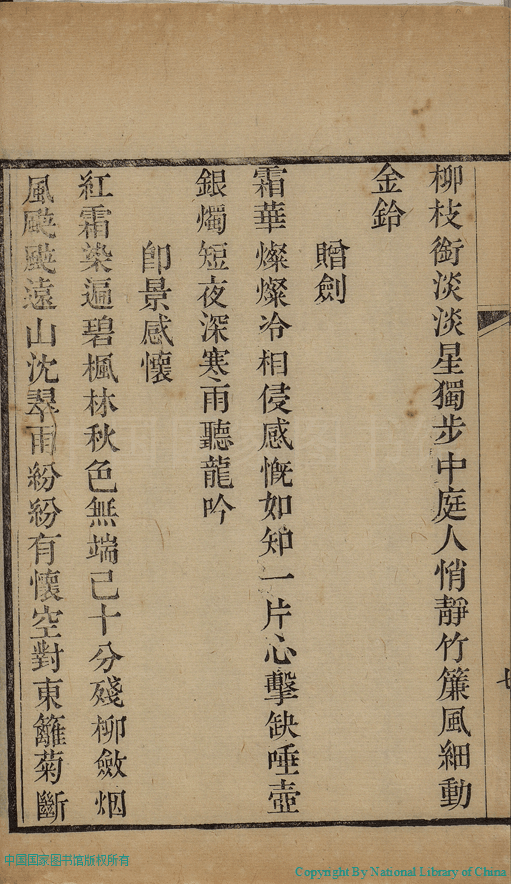 柳枝銜淡淡星獨步中庭人悄靜竹簾風細動
金鈴
贈劍
霜華燦燦冷相侵感慨如知一片心擊缺唾壺
銀燭短夜深寒雨聽龍吟
即景感懷
紅霜染遍碧楓林秋色無端已十分殘柳斂烟
風颭颭遠山沈翠雨紛紛有懷空對東籬菊斷
中国国家图书馆版权所有
Copyright By National Library of China